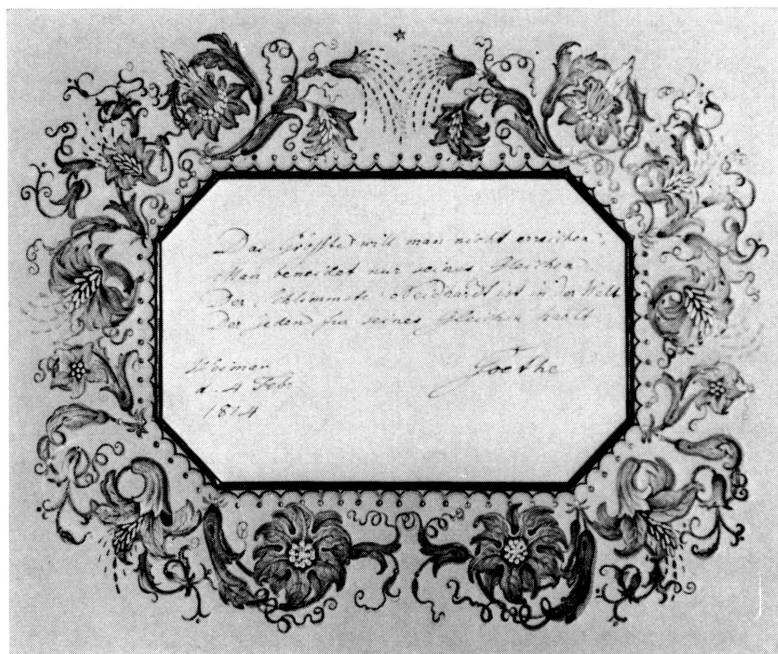 Das Grösste will man nicht erreichen.
Man beneidet nur seines Gleichen
Der schlimmste Neidhardt ist in der Welt
Der jeden für seines Gleichen hält
Weimar
d. 4 Feb
1814
Goethe